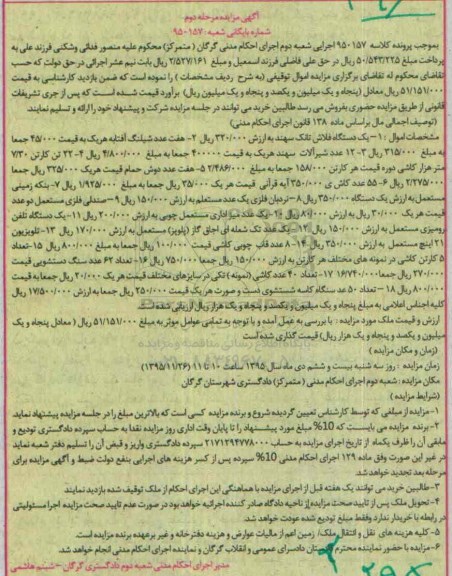 آگهی مزایده مرحله دوم
شماره بایگانی شعبه: ۹۵۰۱۵۷
بموجب پرونده کلاسه ۹۵۰۱۵۷ اجرایی شعبه دوم اجرای احکام مدنی گرگان (متمرکز) محکوم علیه منصور فدائی وشکنی فرزند علی به
پرداخت مبلغ ۵۰/۵۴۳/۲۲۵ ریال در حق علی فاضلی فرزند اسمعیل و مبلغ ۲/۵۲۷/۱۶۱ ریال بابت نیم عشر اجرائی در حق دولت که حسب
تقاضای محکوم له تقاضای برگزاری مزایده اموال توقیفی (به شرح ردیف مشخصات) را نموده است که ضمن بازدید کارشناسی به قیمت
۵۱/۱۵۱/۰۰۰ ریال معادل (پنجاه و یک میلیون و یکصد و پنجاه و یک میلیون ریال) برآورد قیمت شده است که پس از جری تشریفات
قانونی از طریق مزایده حضوری بفروش می رسد طالبین خرید می توانند در جلسه مزایده شرکت و پیشنهاد خود را ارائه و تسلیم نمایند
(توصیف اجمالی مال براساس ماده ۱۳۸ قانون اجرای احکام مدنی)
مشخصات اموال: ۱- یک دستگاه فلاش تانک سهند به ارزش ۳۲۰/۰۰۰ ریال ۲- هفت عدد شیلنگ آفتابه هریک به قیمت ۴۵/۰۰۰ جمعا
به مبلغ ۳۱۵/۰۰۰ ریال ۳- ۱۲ عدد شیرآلات سهند هریک به قیمت ۴۰۰۰۰۰ جمعا به مبلغ ۴/۸۰۰/۰۰۰ ریال ۴- ۳۲ تن کارتن ۷/۳۰
متر هزار کاشی دوره قیمت هر کارتن ۱۵۸/۰۰۰ جمعا به مبلغ ۲/۴۸۶/۰۰۰ ۵- هفت عدد دوش حمام قیمت هریک ۳۲۵/۰۰۰ ریال جمعا
۲/۲۷۵/۰۰۰ ریال ۶- ۵۵ عدد کاشی ۳۵۰/۰۰۰ آیه قرآنی قیمت هر یک ۳۵/۰۰۰ ریال جمعا به مبلغ ۱/۹۲۵/۰۰۰ ریال ۷- بنکه زمینی
مستعمل به ارزش یک دستگاه ۳۵۰/۰۰۰ ریال ۸- نردبان فلزی یک عدد مستعلم به ارزش ۱۵۰/۰۰۰ ریال ۹- صندلی فلزی مستعمل دو عدد
قیمت هر یک ۳۰/۰۰۰ ریال به ارزش ۸۰/۰۰۰ ریال ۱۰- یک عدد میز اداری مستعمل چوبی به ارزش ۲۰۰/۰۰۰ ریال ۱۱- یک دستگاه تلفن
رومیزی مستعمل به ارزش ۱۵۰/۰۰۰ ریال ۱۲- یک عدد تک شعله ای اجاق گاز (پلوپز) مستعمل به ارزش ۱۷۰/۰۰۰ ریال ۱۳- تلویزیون
۲۱ اینچ مستعمل به ارزش ۳۵۰/۰۰۰ ریال ۱۴- ۸ عدد قاب چوبی کاشی قیمت ۱۰۰/۰۰۰ ریال جمعا به مبلغ ۸۰۰/۰۰۰ ریال ۱۵- تعداد
۵ کارتن کاشی در نمونه های مختلف هر کارتن به ارزش ۱۵۰/۰۰۰ ریال جمعا ۷۵۰/۰۰۰ ریال ۱۶- تعداد ۶۲ عدد سنگ دستشویی قیمت
۲۷۰/۰۰۰ ریال جمعا ۱۶/۷۴۰/۰۰۰ ۱۷- تعداد ۴۰ عدد کاشی (نمونه) تکی در سایزهای مختلف قیمت هر یک ۲۰/۰۰۰ ریال جمعا به قیمت
۸۰۰/۰۰۰ ریال ۱۸- تعداد ۵۰ عدد سنگاه کاسه شستشوی دست و صورت هر یک قیمت ۲۵۰/۰۰۰ ریال جمعا به ارزش ۱۷/۵۰۰/۰۰۰ ریال
کلیه اجناس اعلامی به مبلغ پنجاه و یک میلیون و یکصد و پنجاه و یک هزار ریال ارزیابی شده است
ارزش و قیمت ملک مورد مزایده: با بررسی به عمل آمده و با توجه به تمامی عوامل موثر به مبلغ ۵۱/۱۵۱/۰۰۰ ریال (معادل پنجاه و یک
میلیون و یکصد و پنجاه و یک هزار ریال) قیمت گذاری شده است
(زمان و مکان مزایده)
زمان مزایده: روز سه شنبه بیست و ششم دی ماه سال ۱۳۹۵ ساعت ۱۰ تا ۱۱ (۱۳۹۵/۱۱/۲۶)
مکان مزایده: شعبه دوم اجرای احکام مدنی (متمرکز) دادگستری شهرستان گرگان
(شرایط مزایده)
۱- مزایده از مبلغی که توسط کارشناس تعیین گردیده شروع و برنده مزایده کسی است که بالاترین مبلغ را در جلسه مزایده پیشنهاد نماید
۲- برنده مزایده می بایست که 10% مبلغ مورد پیشنهاد را تا پایان وقت اداری روز مزایده نقدا به حساب سپرده دادگستری تودیع و
مابقی آن را ظرف یکماه از تاریخ اجرای مزایده به حساب ۲۱۷۱۲۹۴۷۷۸۰۰۰ سپرده دادگستری واریز و قبض آن را تسلیم دفتر شعبه نماید
در غیر این صورت وفق ماده ۱۲۹ اجرای احکام مدنی 10% سپرده پس از کسر هزینه های اجرایی بنفع دولت ضبط و آگهی مزایده برای
مرحله بعد تجدید خواهد شد.
۳- طالبین خرید می توانند یک هفته قبل از اجرای مزایده با هماهنگی این اجرای احکام از ملک توقیف شده بازدید نمایند
۴- تحویل ملک پس از تایید صحت مزایده از ناحیه دادگاه صادر کننده اجرائیه خواهد بود در صورت عدم تایید صحت مزایده اجرا مسئولیتی
در رابطه با خریدار ندارد وفقط مبلغ تودیع شده عودت خواهد شد.
۵- کلیه هزینه های نقل و انتقال ملک/ زمین اعم از مالیات عوارض و هزینه دفترخانه و غیر برعهده برنده مزایده است
۶- مزایده با حضور نماینده محترم دادستان دادسرای عمومی و انقلاب گرگان و نماینده اجرای احکام مدنی انجام خواهد شد
مدیر اجرای احکام مدنی شعبه دوم دادگستری گرگان - شبنم هاشمی